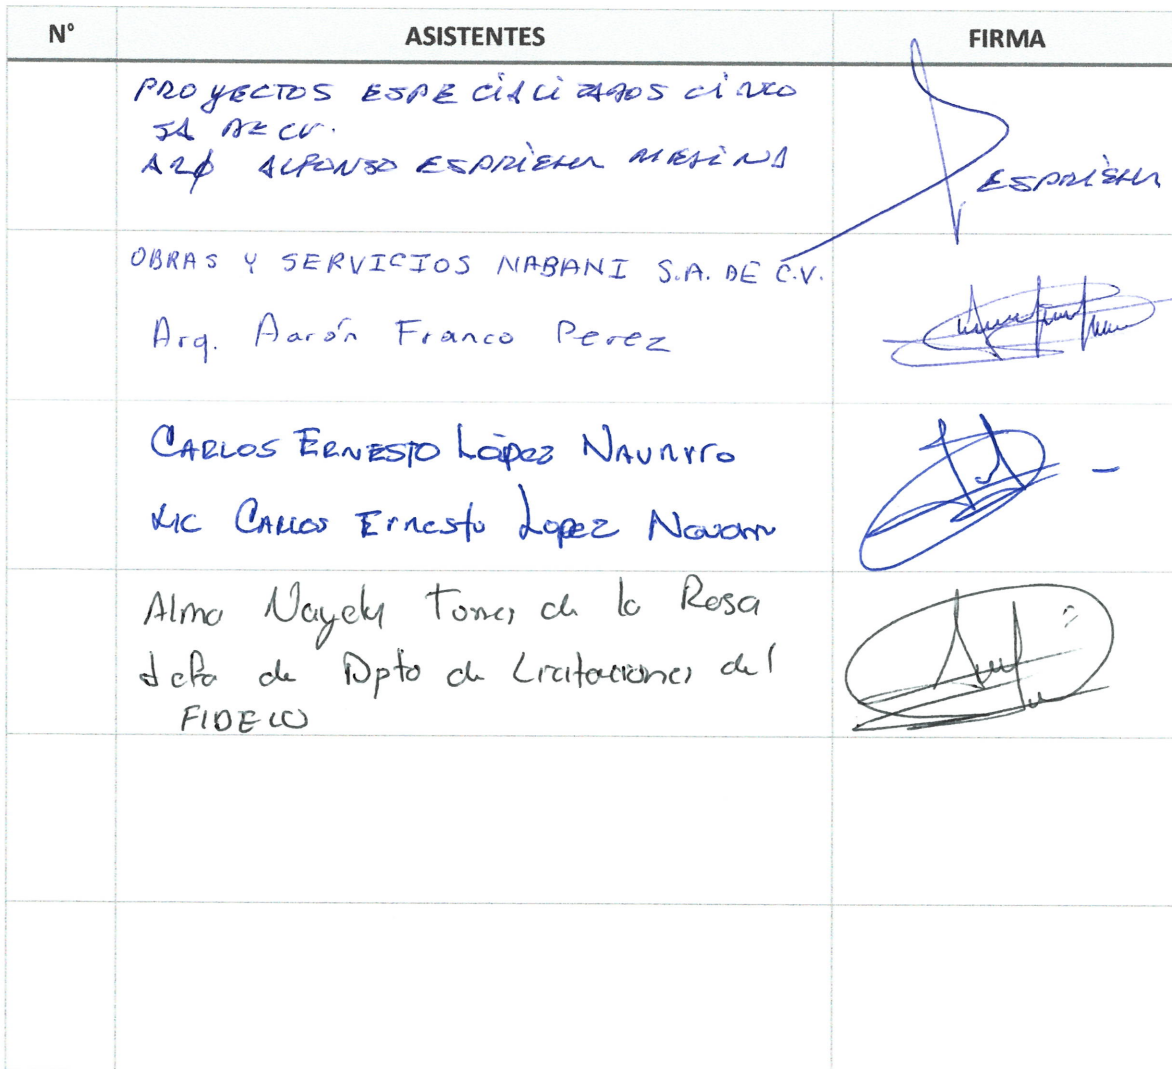 N° ASISTENTES FIRMA
PROYECTOS ESPECIALIZADOS CINCO
SA DE CV.
ARQ ALFONSO ESPRIELLA MEDINA
ESPRIELLA
OBRAS Y SERVICIOS NABANI S.A. DE C.V.
Arq. Aarón Franco Perez
CARLOS ERNESTO López NAVARRO
LIC CARLOS Ernesto Lopez Navarro
Alma Nayely Torres de la Rosa
Jefa de Dpto de Licitaciones del
FIDECO